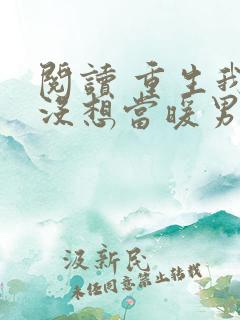 閱讀 重生我
沒想當暖男
汲新民
未经同意禁止转载